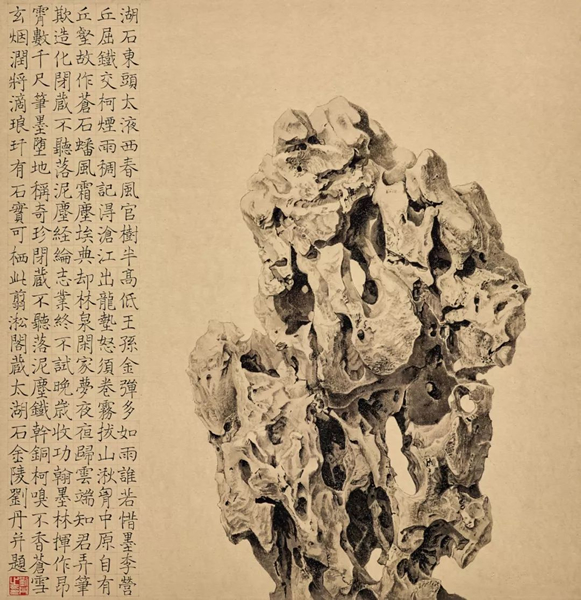 湖石東頭太液西春風官樹半高低王孫金彈多如雨誰若惜墨李營
丘屈鐵交柯煙雨稠記得滄江出龍蟄怒須卷霧拔山湫胷中原自有
丘壑故作蒼石蟠風霜塵埃典却林泉閑家夢夜夜歸雲端知君弄筆
欺造化閉藏不聽落泥塵経綸志業終不試晩歲收功翰墨林揮作昂
霄數千尺筆墨墮地稱奇珍閉藏不聽落泥塵鐵幹銅柯嗅不香蒼雪
玄烟潤將滴琅玕有石寶可栖此翦淞閣藏太湖石金陵劉丹并題